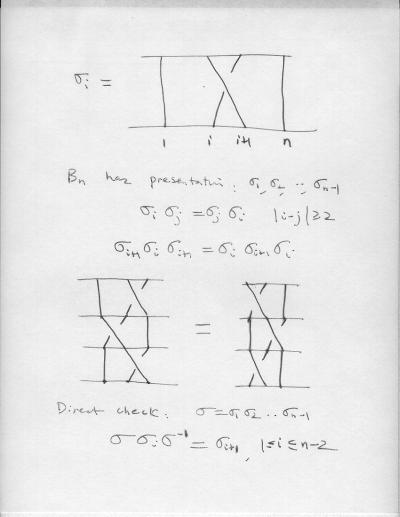 σᵢ =
1 i i+1 n
Bₙ has presentation: σ₁, σ₂, ..., σₙ₋₁
σᵢ σⱼ = σⱼ σᵢ |i-j| ≥ 2
σᵢ₊₁ σᵢ σᵢ₊₁ = σᵢ σᵢ₊₁ σᵢ
=
Direct check: σ = σ₁ σ₂ .. σₙ₋₁
σ σᵢ σ⁻¹ = σᵢ₊₁, 1 ≤ i ≤ n-2